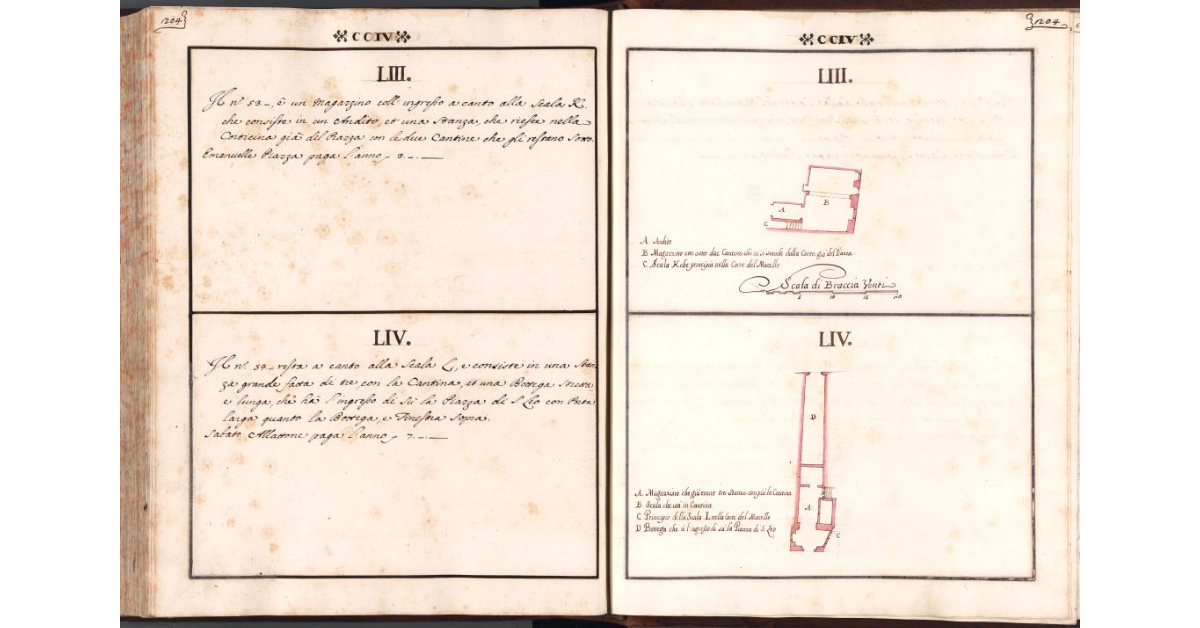 204
CCIV
LIII.
Il nº. 53_, è un Magazzino coll' ingresso a canto alla Scala K.
che consiste in un Andito, et una Stanza, che riesce nella
Corticina già del Piazza con le due Cantine che gli restano sotto.
Emanuelle Piazza paga l'anno
LIV.
Il nº. resta a canto alla Scala L, e consiste in una Stan,
za grande fatta di tre, con la Cantina, et una Bottega
e lunga, che hà l'ingresso di sù la Piazza di S. Leo con Porta
larga quanto la Bottega, e Finestra sopra.
Sabato paga l'anno 7._._
204
CCIV
LIII.
A
B
C
A Andito
B Magazzino con sotto due Cantine che vi si scende dalla Corte già del Piazza
C Scala K che principia nella Corte del Macello
Scala di Braccia Venti
5 10 15 20
LIV.
D
A
C
A Magazzino che già erano tre stanze con più la Cantina
B Scala che và in Cantina
C Principio della Scala L nella Corte del Macello
D Bottega che à l'ingresso di sù la Piazza di S. Leo